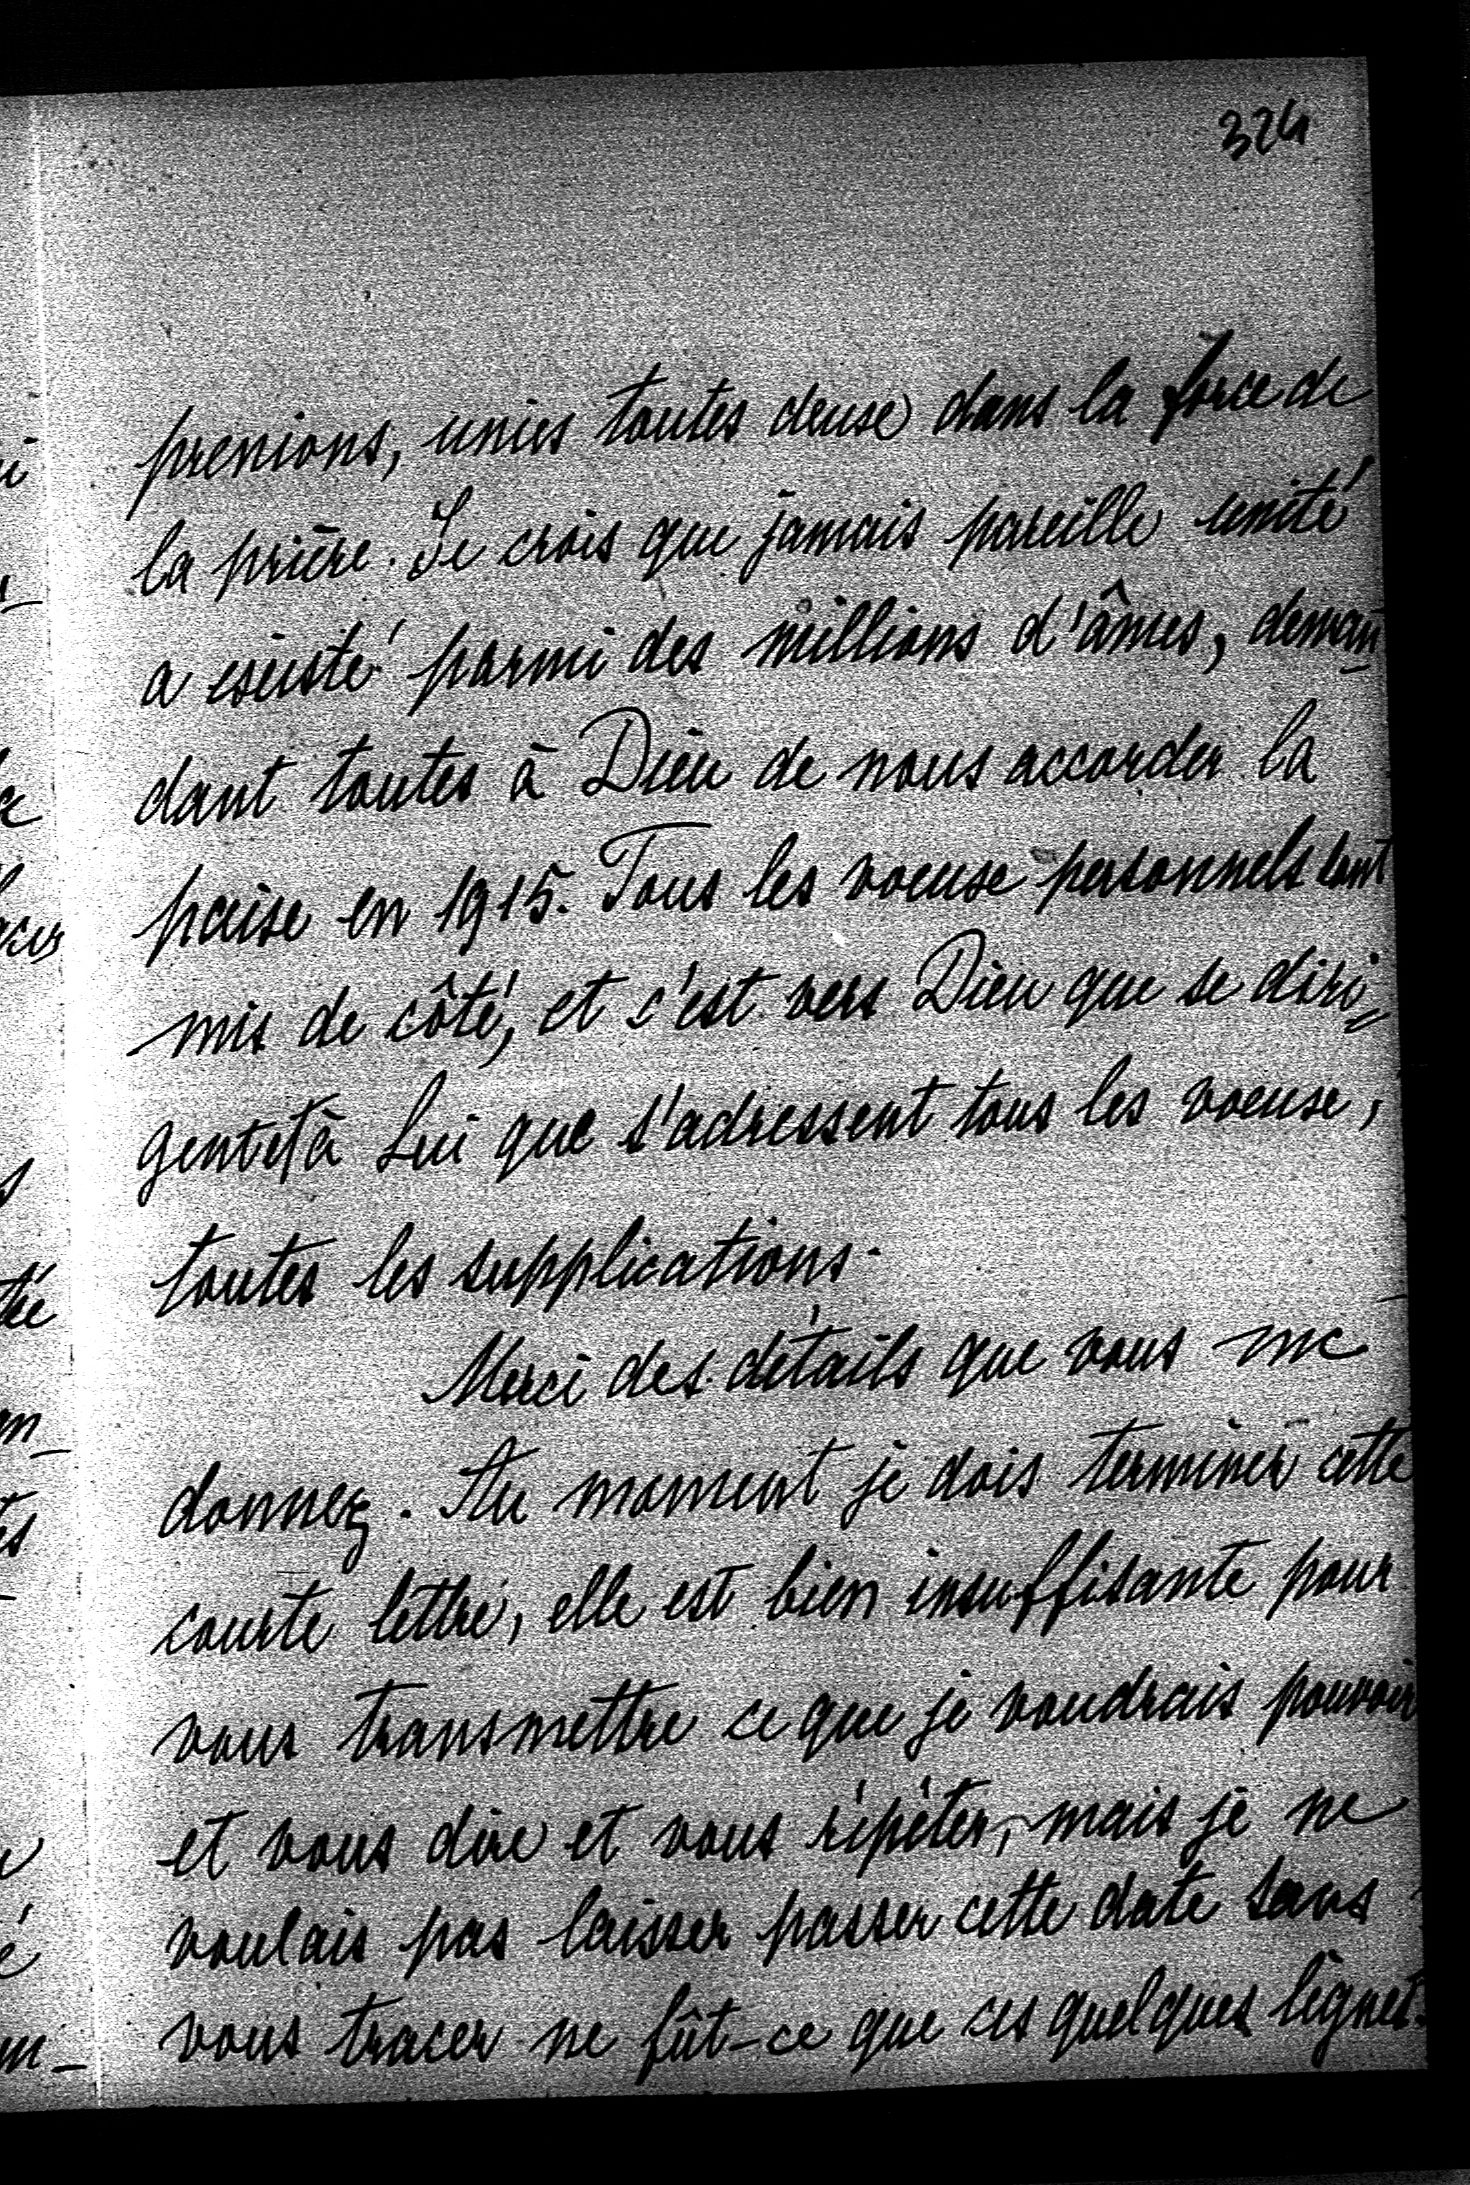 324
prenions, unies toutes deux dans la force de
la prière. Je crois que jamais pareille unité
a existé parmi des millions d'âmes, deman-
dant toutes à Dieu de nous accorder la
paix en 1915. Tous les voeux personnels sont
mis de côté, et c'est vers Dieu que se diri=
gent et à Lui que s'adressent tous les voeux,
toutes les supplications.
Merci des détails que vous me
donnez. Au moment je dois terminer cette
courte lettre, elle est bien insuffisante pour
vous transmettre ce que je voudrais pouvoir
et vous dire et vous répéter, mais je ne
voulais pas laisser passer cette date sans
vous tracer ne fût-ce que ces quelques lignes.